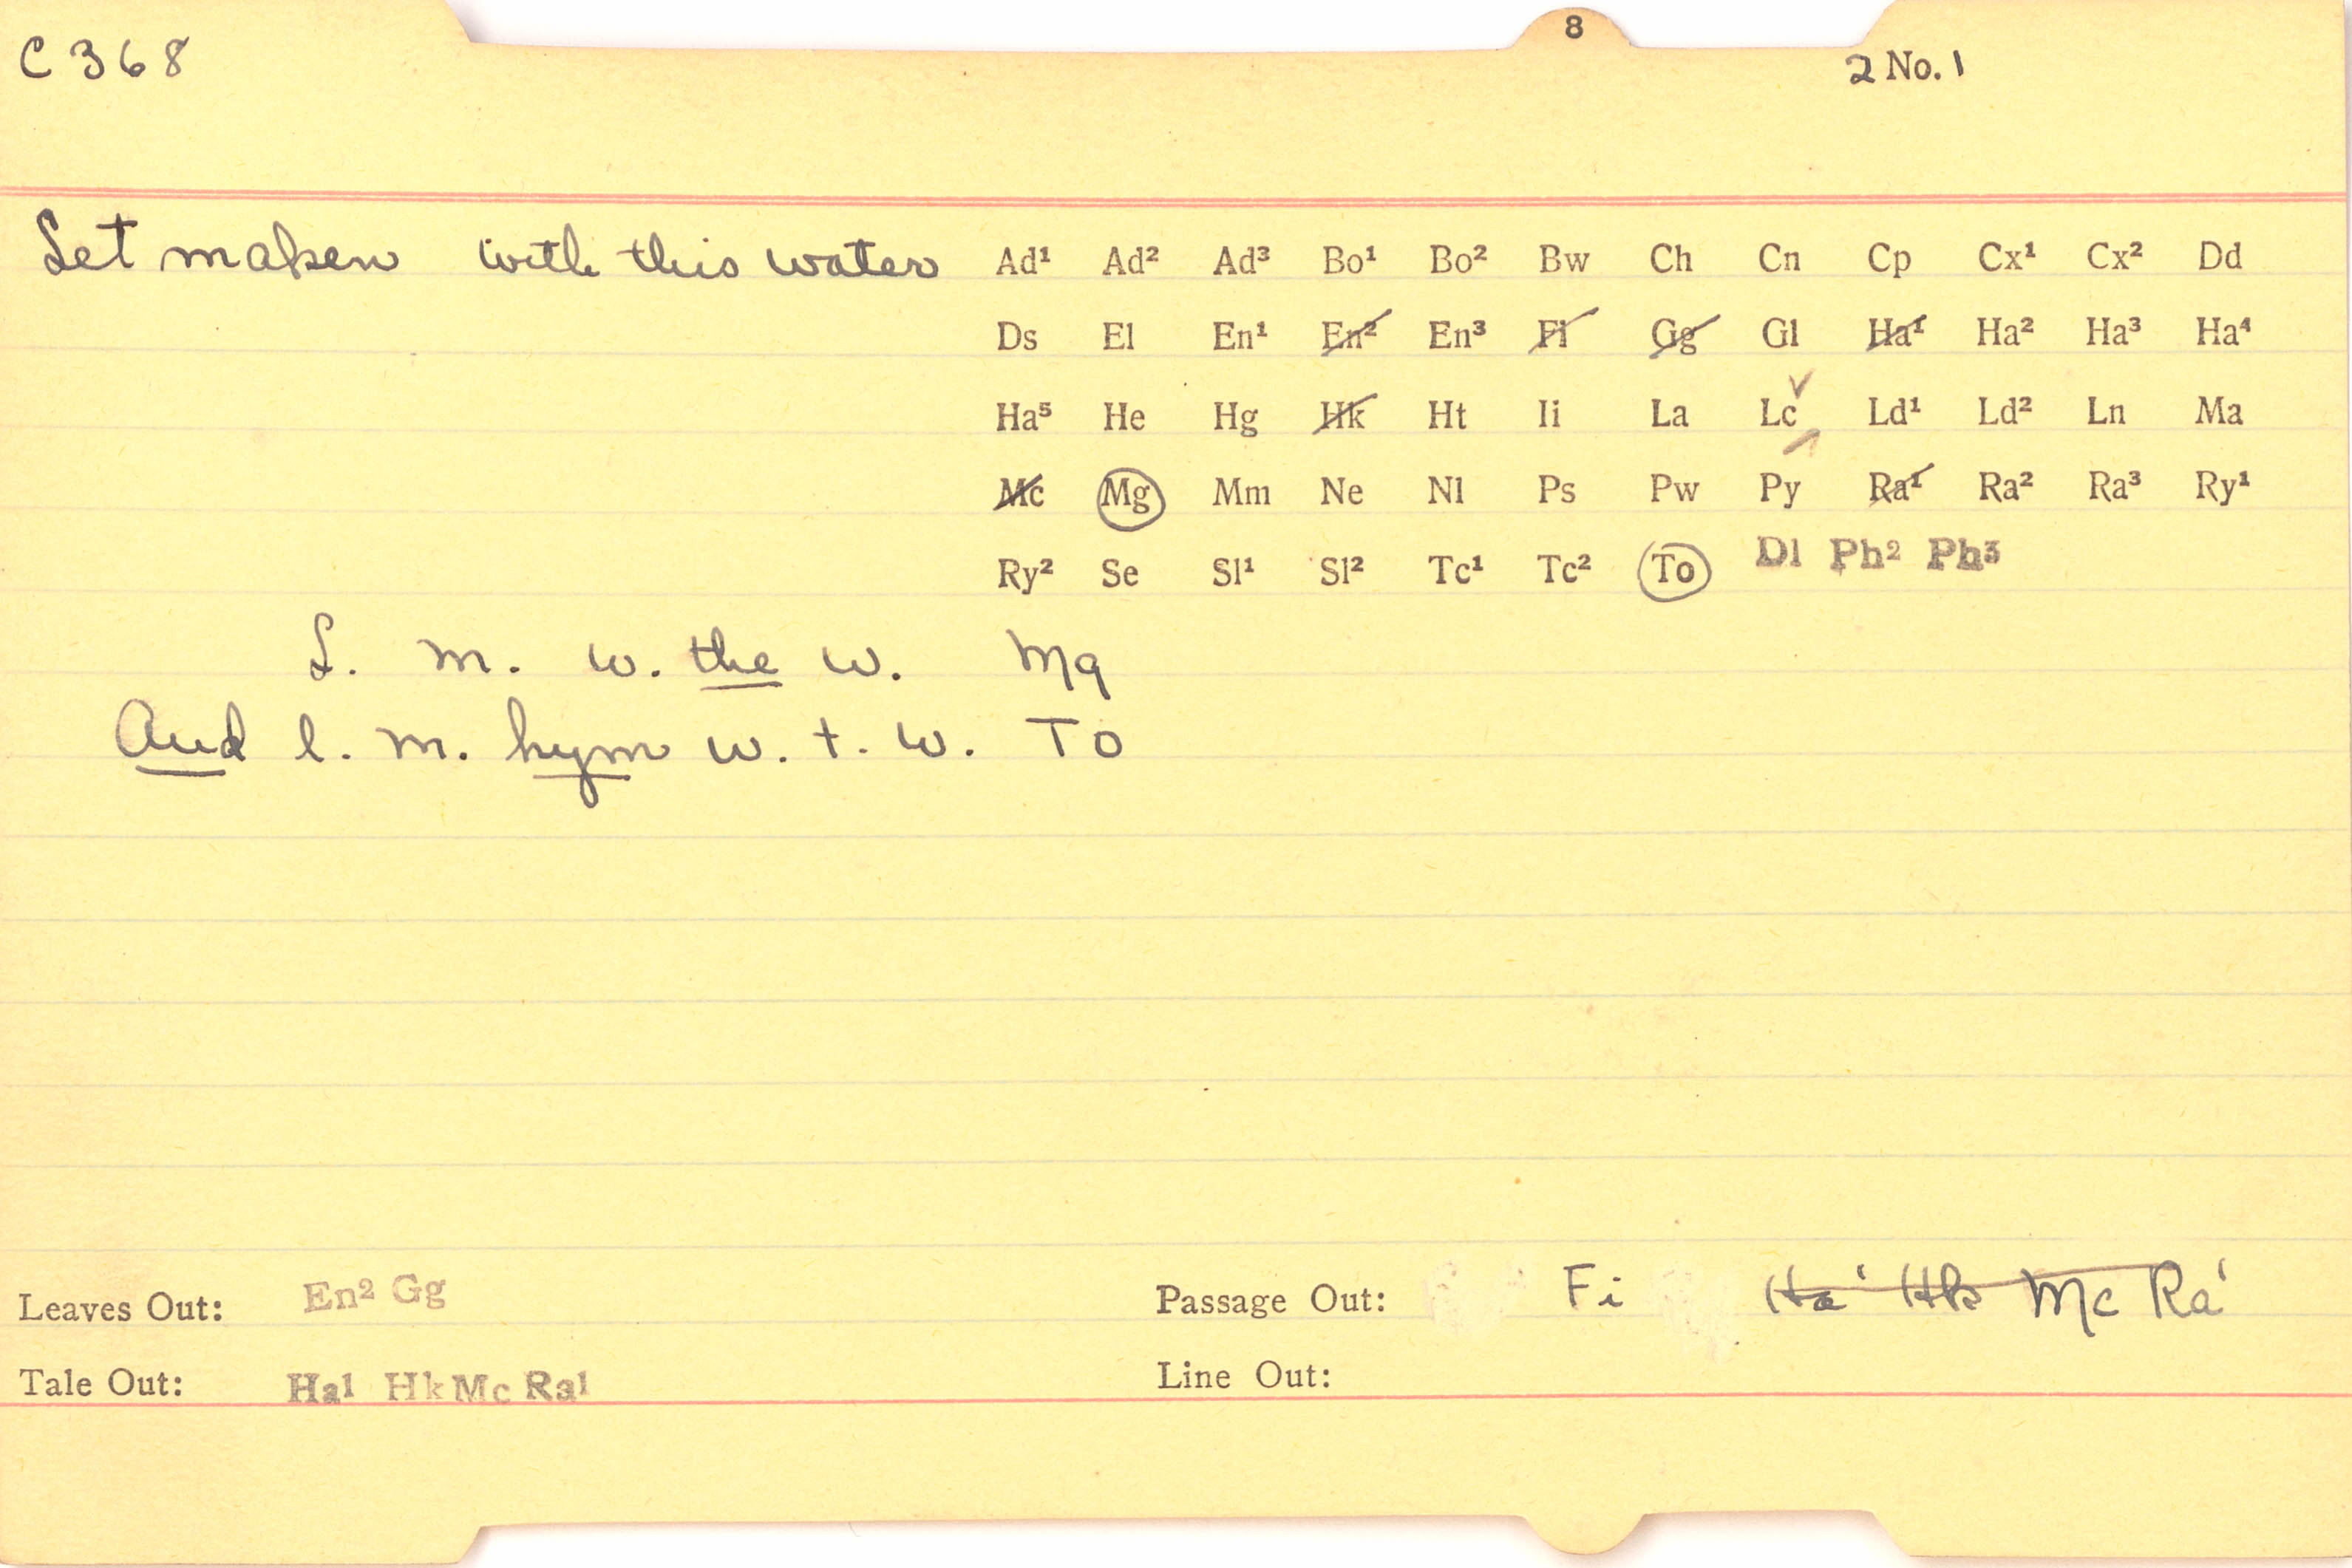 8
C 368
2 No. 1
Let maken with this water
Ad¹ Ad² Ad³ Bo¹ Bo² Bw Ch Cn Cp Cx¹ Cx² Dd
Ds El En¹ En² En³ Fi Gg Gl Ha¹ Ha² Ha³ Ha⁴
Ha⁵ He Hg Hk Ht Ii La Lc Ld¹ Ld² Ln Ma
Mc Mg Mm Ne Nl Ps Pw Py Ra¹ Ra² Ra³ Ry¹
Ry² Se Sl¹ Sl² Tc¹ Tc² To Dl Ph² Ph³
L. m. w. the w. Mg
And l. m. hym w. t. w. To
Leaves Out: En² Gg
Passage Out: Fi Ha¹ Hk Mc Ra¹
Tale Out: Ha¹ Hk Mc Ra¹
Line Out: